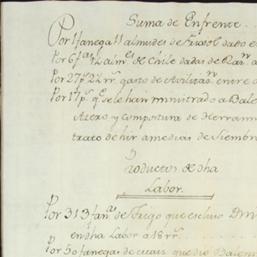 Suma de Enfrente
Por 1 fanega 11 almudes de Frixol dado en
Por 6 fas 2 alms de Chile dadas de Ran
Por 27ps 2 rrs gasto de
Por 17ps qe se le han ministrado a Bale
Acero y Compostura de Herram
trato de hir amedias de Siembr
Productos de dha
Labor.
Por 313 fans de Trigo que
en dha Labor a 18 rrs
Por 50 fanegas de maiz que dio Balen